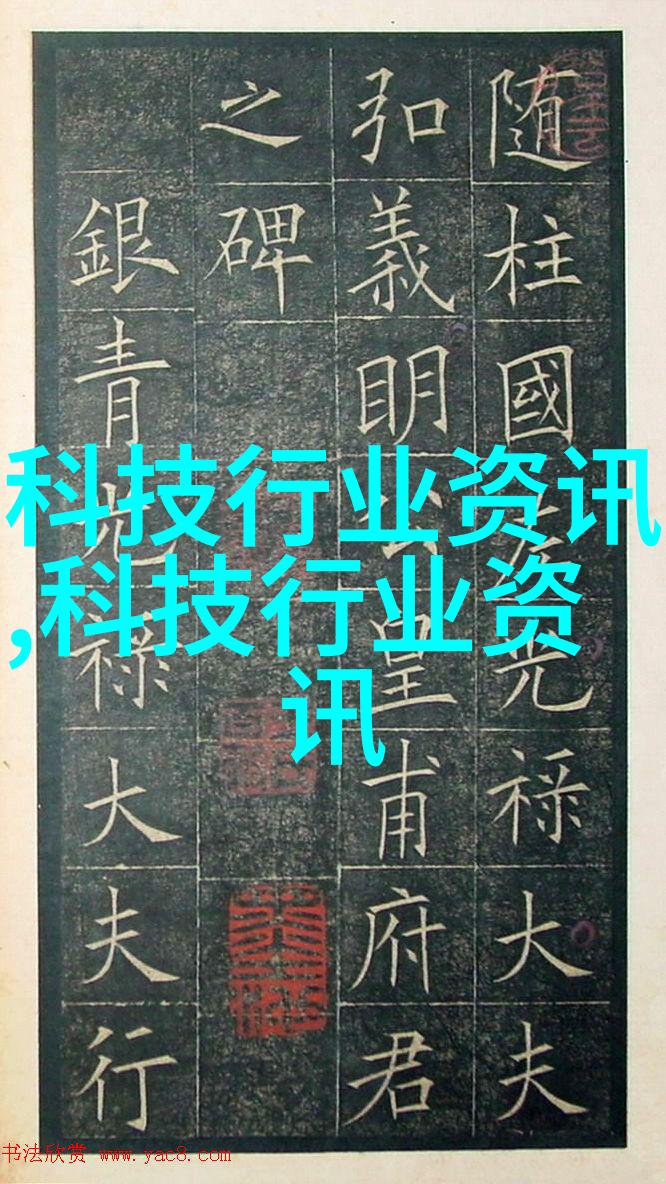 随柱國左光禄大夫
弘義眀公皇甫府君
之碑
銀青光禄大夫行
科技行业资讯
,科技行业资
讯
书法欣赏 www.yac8.com